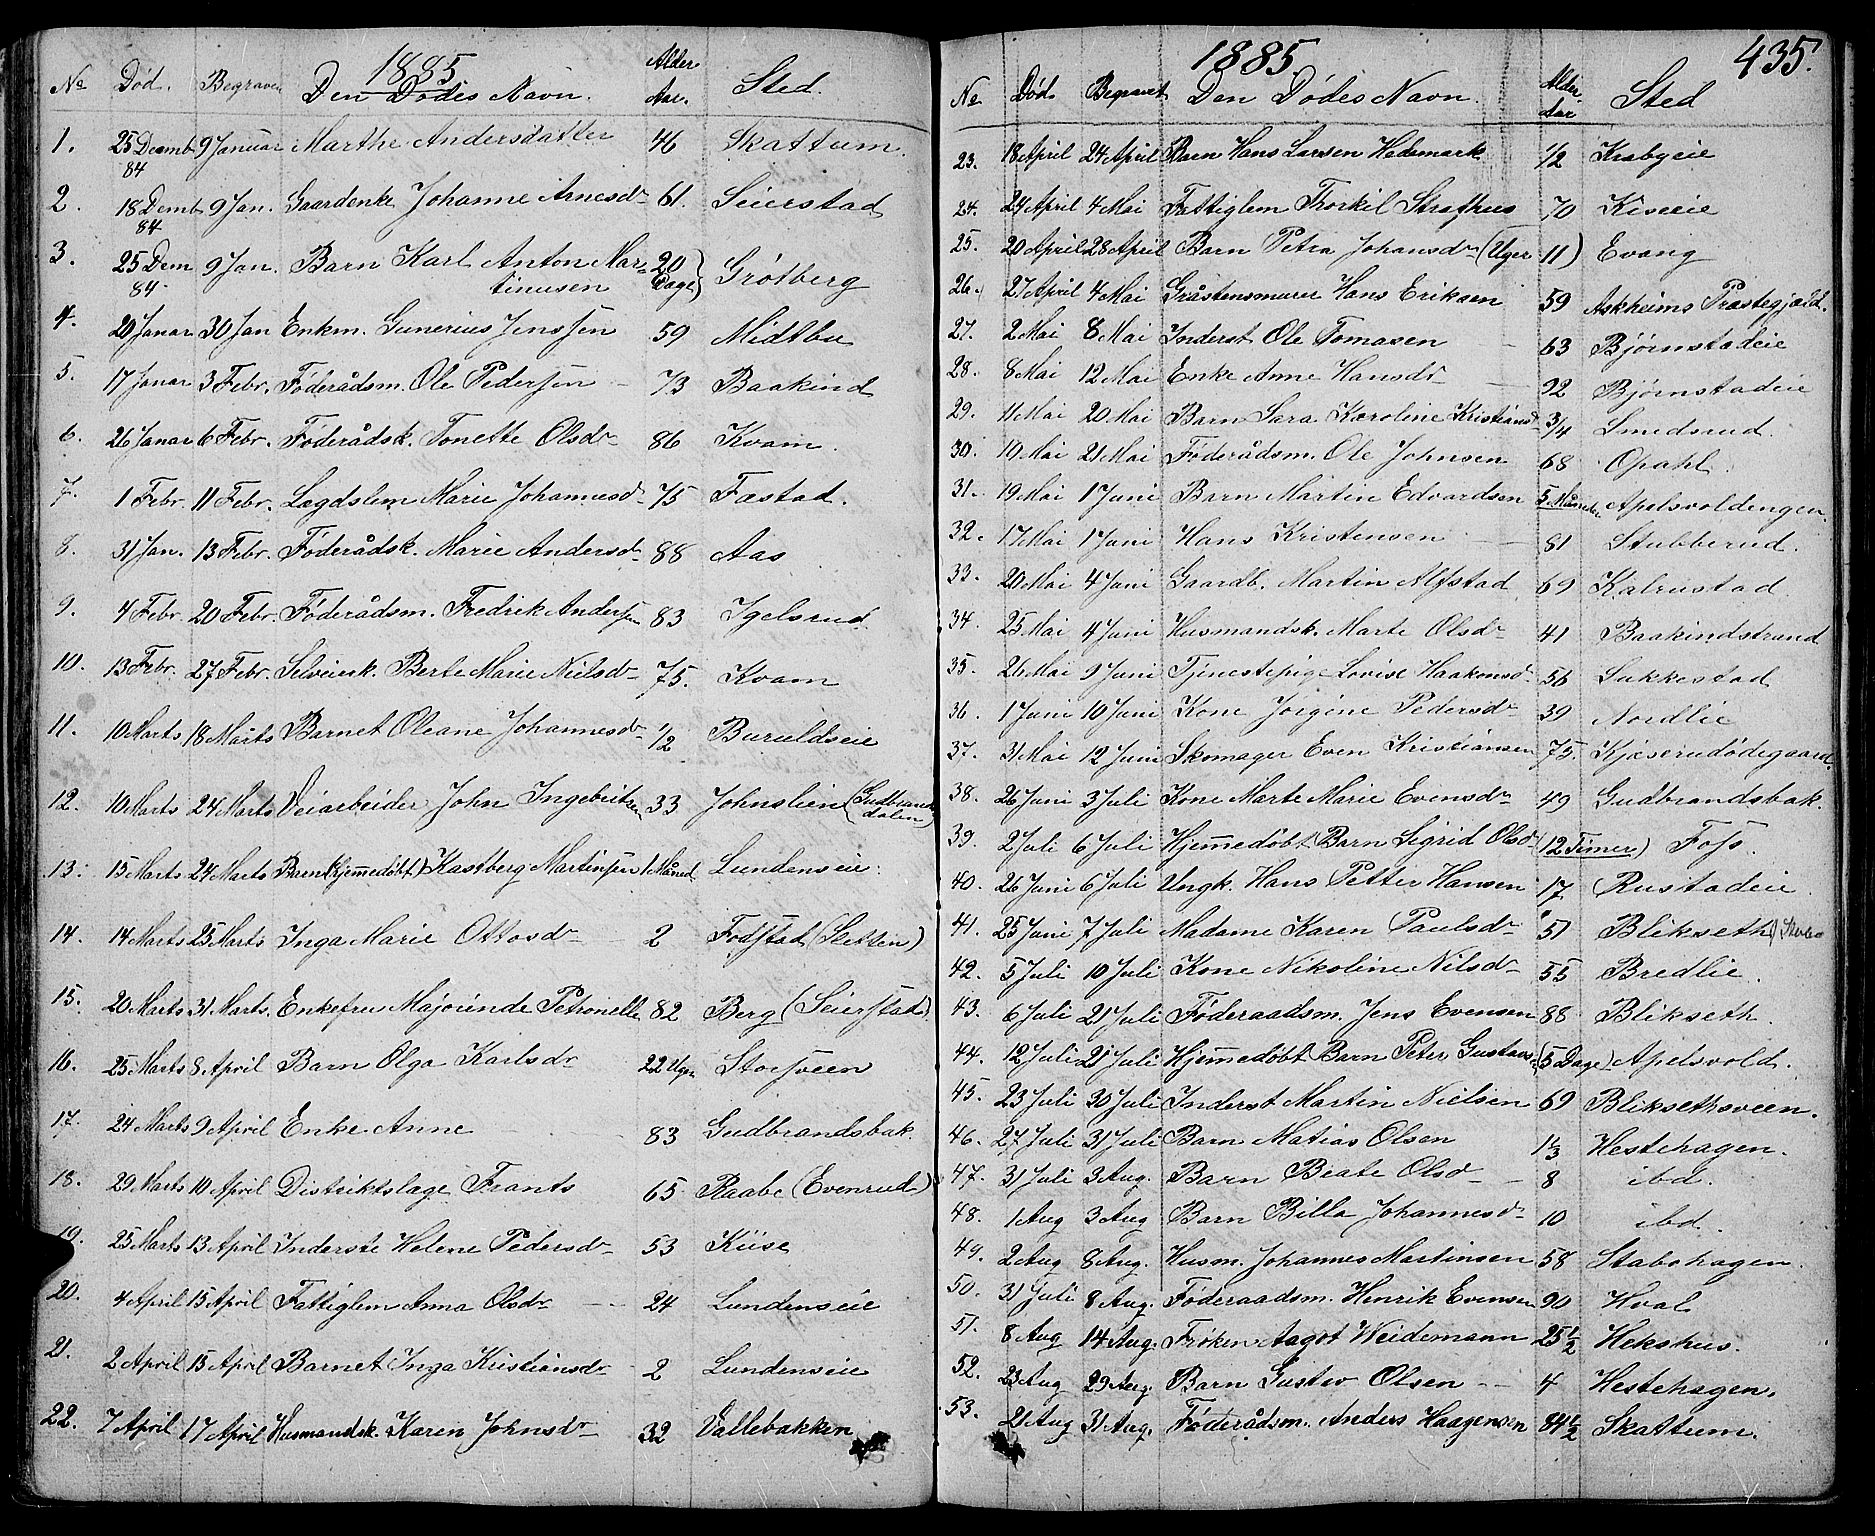 1885
No Død. Begraven Den Dødes Navn. Alder Aar. Sted.
1. 25 Decemb 84 9 Januar Marthe Andersdatter 46 Skattum.
2. 18 Demb 84 9 Jan. Gaardenke Johanne Arnesdr 61. Seierstad
3. 25 Dem 84 9 Jan. Barn Karl Anton Mar= 20 Dage) Grøtberg
tinusen
4. 20 Januar 30 Jan Enkm. Gunerius Jenssen 59 Midtbu
5. 17 Januar 3 Febr. Føderådsm. Ole Pedersen 73 Baakind
6. 26 Januar 6 Febr. Føderådsk. Tonette Olsdr 86 Kvam.
7. 1 Febr. 11 Febr. Lægdslem Marie Johannesd 75 Fæstad.
8. 31 Jan. 13 Febr. Føderådsk. Marie Andersd 88 Aas
9. 4 Febr. 20 Febr. Føderådsm. Fredrik Andersen 83 Igelsrud.
10. 13 Febr. 27 Febr. Selveierk. Berte Marie Nielsdr 75. Kvam
11. 10 Marts 18 Marts Barnet Oleane Johannesdr 1/2 Buruldseie
12. 10 Marts 24 Marts Veiarbeider John Ingebritsen 33 Johnslien (Gudbrandsdalen)
13. 15 Marts 24 Marts Barn (hjemmedøbt) Kastberg Martinsen 1 Måned Lundenseie.
14. 14 Marts 25 Marts Inga Marie Ottosdr 2 Fodstad (Sletten)
15. 20 Marts 31 Marts. Enkefru Majorinde Petronelle 82 Berg (Seierstad)
16. 25 Marts 8 April Barn Olga Karlsdr 22 Uger Storsveen
17. 24 Marts 9 April Enke Anne 83 Gudbrandsbak.
18. 29 Marts 10 April Distriktslæge Frants 65 Raabe (Evenrud)
19. 25 Marts 13 April Inderste Helene Pedersdr 53 Kiise
20. 4 April 15 April Fattiglem Anna Olsdr 24 Lundenseie
21. 2 April 15 April Barnet Inga Kristiansdr 2 Lundenseie
22. 7 April 17 April Husmandsk. Karen Johnsdr 32 Vallebakken
1885 435.
No Død. Begravet Den Dødes Navn. Alder Aar Sted
23. 18 April 24 April Barn Hans Larsen Hedemark 1/2 Krabyeie
24. 24 April 4 Mai Fattiglem Thorkil Strafhus 70 Kiseeie
25. 20 April 28 April Barn Petra Johansdr (Uger 11) Evang
26. 27 April 4 Mai Gråstensmurer Hans Eriksen 59 Askheims Præstegjæld.
27. 2 Mai 8 Mai Inderst Ole Tomasen 63 Bjørnstadeie
28. 8 Mai 12 Mai Enke Anne Hansdr 92 Bjørnstadeie
29. 11 Mai 20 Mai Barn Sara Karoline Kristiansd 3/4 Smedsrud.
30. 10 Mai 21 Mai Føderådsm. Ole Johnsen 68 Opahl.
31. 19 Mai 1 Juni Barn Martin Edvardsen 5 Måneder Apelsvoldengen.
32. 17 Mai 1 Juni Hans Kristensen 81 Stubberud.
33. 20 Mai 4 Juni Gaardb. Martin Alfstad 69 Kalrustad.
34. 25 Mai 4 Juni Husmandsk. Marte Olsdr 41 Baakindstrand
35. 26 Mai 9 Juni Tjenestepige Lovise Haakonsd 56 Sukkestad
36. 1 Juni 10 Juni Kone Jørgine Pedersdr 39 Nordlie
37. 31 Mai 12 Juni Skomager Even Kristiansen 75. Kjøserudødegaard.
38. 26 Juni 3 Juli Kone Marte Marie Evensdr 49 Gudbrandsbak.
39. 2 Juli 6 Juli Hjemmedøbt Barn Sigrid Olsdr (12 Timer) Foss.
40. 26 Juni 6 Juli Ungk. Hans Petter Hansen 17 Rustadeie.
41. 25 Juni 7 Juli Madame Karen Paulsdr 51 Blikseth
42. 5 Juli 10 Juli Kone Nikoline Nilsdr 55 Bredlie.
43. 6 Juli 21 Juli Føderaadsm. Jens Evensen 88 Blikseth.
44. 12 Juli 21 Juli Hjemmedøbt Barn Peter Gustavs (5 Dage) Apelsvold.
45. 23 Juli 30 Juli Inderst Martin Nielsen 69 Bliksethsveen.
46. 27 Juli 31 Juli Barn Matias Olsen 1 1/3 Hestehagen.
47. 31 Juli 3 Aug. Barn Beate Olsdr 8 ibd.
48. 1 Aug 3 Aug Barn Billa Johannesdr 10 ibd.
49. 2 Aug 8 Aug. Husm. Johannes Martinsen 58 Stabohagen.
50. 31 Juli 8 Aug. Føderaadsm. Henrik Evensen 90 Hval
51. 8 Aug 14 Aug. Frøken Aagot Weidemann 25 1/2 Hekshus.
52. 23 Aug 29 Aug. Barn Gustav Olsen 4 Hestehagen.
53. 21 Aug 31 Aug. Føderådsm. Anders Haagensen 84 1/2 Skattum.